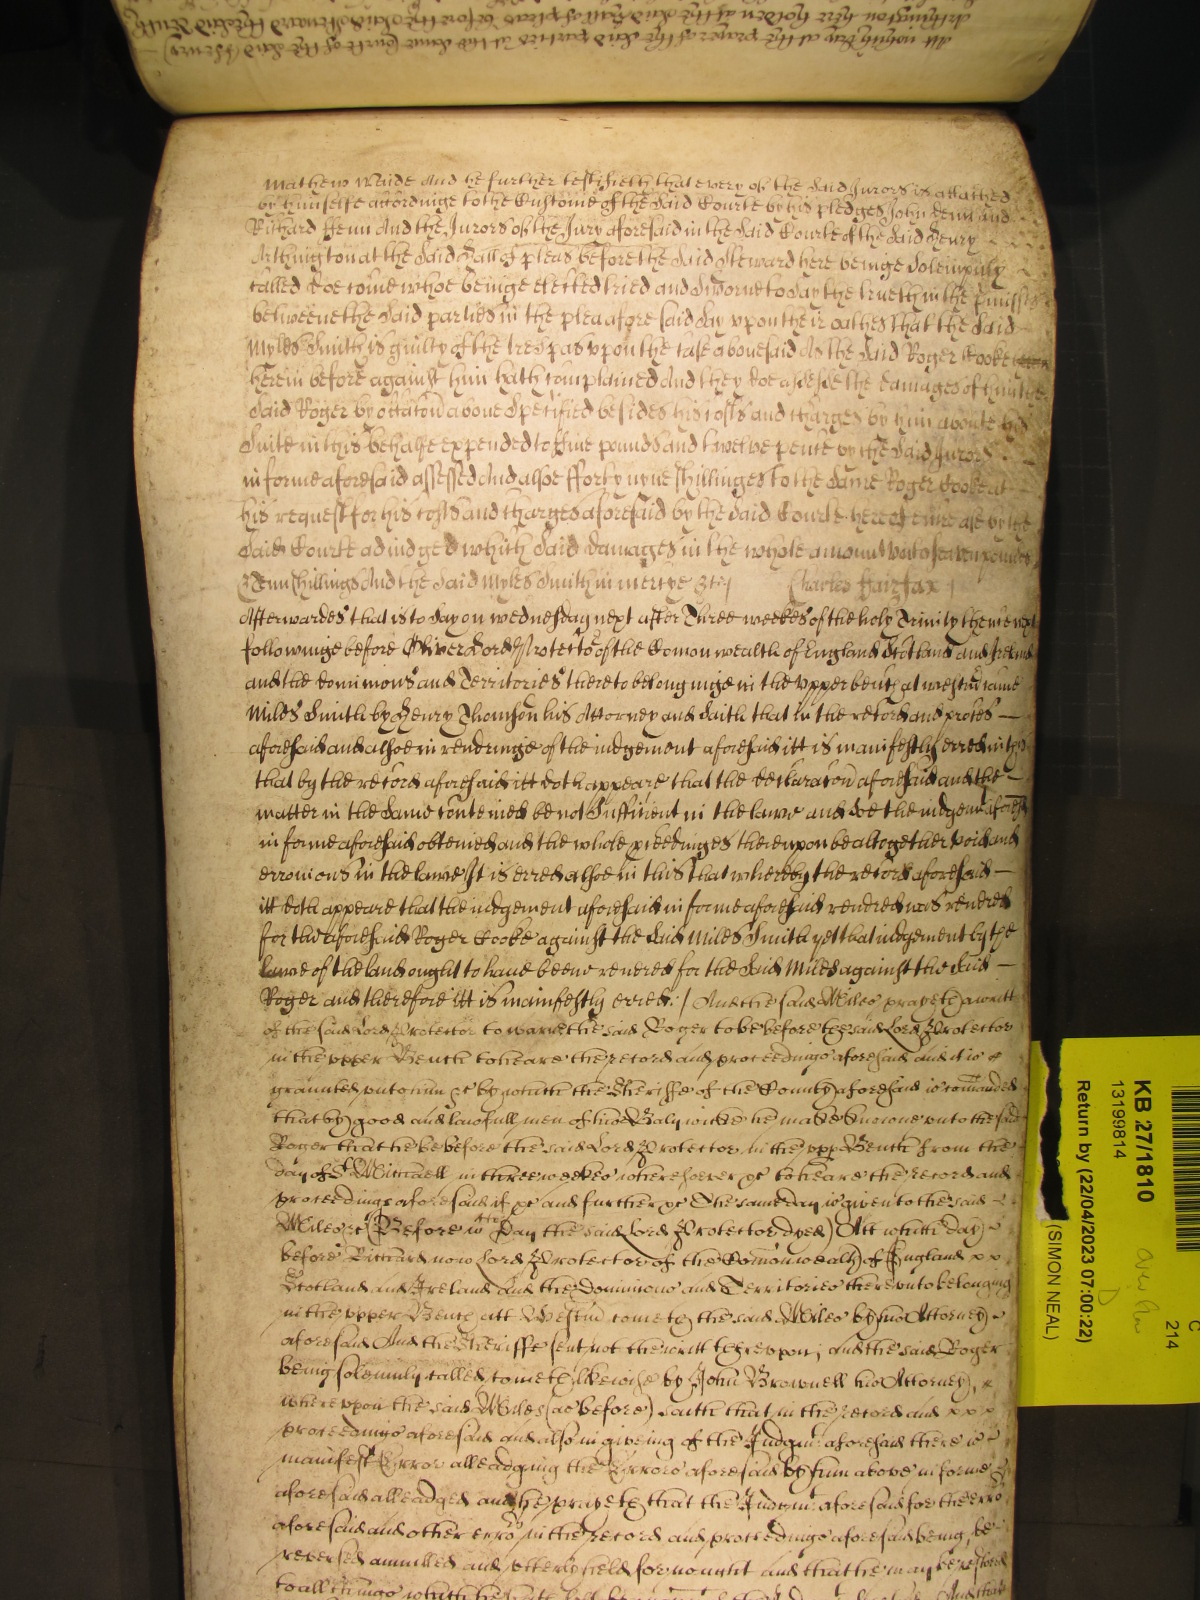 Mathew Waide And he further testifieth that every of the said Jurors is attached
by himselfe accordinge to the Custome of the said Courte by his pledges John Denn and
Richard Fenn And the Jurors of the Jury aforesaid in the said Courte of the said Henry
Arthington at the said Hall of pleas before the said Steward here beinge solempnly
called doe come whoe beinge elected tried and sworne to say the trueth in the p'misses
betweene the said parties in the plea aforesaid say upon their oathes that the said
Myles Smith is guilty of the trespas upon the case abovesaid As the said Roger Cooke
herein before against him hath complained And they doe assesse the damages of him the
said Roger by occac'on above specified besides his costs and charges by him aboute his
suite in this behalfe expended to five pounds and twelve pence by the said Jurors
in forme aforesaid assessed And alsoe fforty nyne shillinges to the same Roger Cooke at
his request for his costs and charges aforesaid by the said Courte here of encrease by the
said Courte adiudged which said damages in the whole amount unto seaven pounds
Tenn shillings And the said Myles Smith in mercye &c / Charles Fairfax /
Afterwardes that is to say on wednesday next after Three weekes of the holy Trinity then next
followinge before Oliver Lord Protector of the Comon wealth of England Scotland and Ireland
and the Dominions and Territories thereto belonginge in the upper bench at Westm' came
Miles Smith by Henry Thomson his Attorney and saith that in the record and proces
aforesaid and alsoe in rendringe of the iudgement aforesaid itt is manifestly erred in this
that by the record aforesaid itt doth appeare that the declarac'on aforesaid and the
matter in the same conteined be not sufficient in the lawe and soe the iudgem' aforesd
in forme aforesaid obteined and the whole p'ceedinges thereupon be altogether void and
erronious in the lawe It is erred alsoe in this that whereby the record aforesaid
itt doth appeare that the iudgement aforesaid in forme aforesaid rendred was rendred
for the aforesaid Roger Cooke against the said Miles Smith yet that iudgement by the
lawe of the land ought to have beene rendred for the said Miles against the said
Roger and therefore itt is manifestly erred / And the said Miles prayeth a writt
of the said Lord Protector to warne the said Roger to be before the said Lord Protector
in the upper Bench to heare the record and proceedings aforesaid and it is
graunted unto him &c by which the Sheriffe of the County aforesaid is comanded
that by good and lawfull men of his Balywicke he make knowne unto the said
Roger that he be before the said Lord Protector in the upp Bench from the
day of St Michaell in three weekes wheresoever &c to heare the record and
proceedings aforesaid if &c and further &c The same day is given to the said
Miles &c (Before w'ch Day the said Lord Protector dyed) Att which day
before Richard now Lord Protector of the Comonwealth of England
Scotland and Ireland And the Dominions and Territories thereunto belonging
in the upper Bench att Westm' cometh the said Miles by his Attorney
aforesaid And the Sheriffe sent not the writt thereupon, and the said Roger
being solemnly called cometh likewise by John Brownell his Attorney,
whereupon the said Miles (as before) saith that in the record and
proceedings aforesaid and also in giveing of the Judgm' aforesaid there is
manifest Error alleadging the Errors aforesaid by him above in forme
aforesaid alleadged and he prayeth that the Judgm' aforesaid for the erro'
aforesaid and other erro' in the record and proceedings aforesaid being, be
reversed annulled and utterly held for nought and that he may be restored
to all things which
KB 27/1810
13199814
Return by (22/04/2023 07:00:22)
(SIMON NEAL)
214